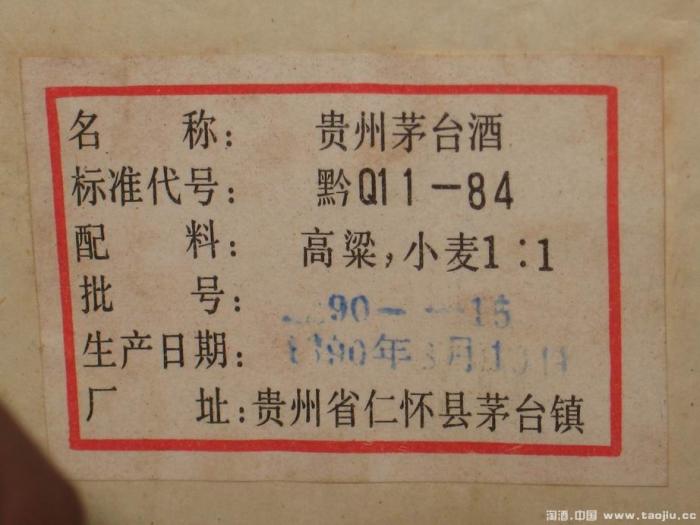 名 称: 贵州茅台酒
标准代号: 黔Q11-84
配 料: 高粱,小麦1:1
批 号: 90- 15
生产日期: 1990年 月
厂 址:贵州省仁怀县茅台镇
淘酒.中国 www.taojiu.cc